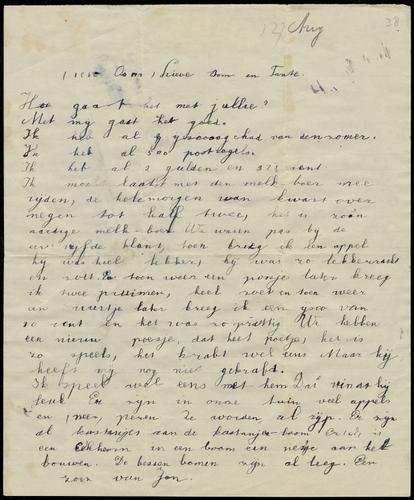 27 Aug
38
Lieve Oom en Tante.
Hoe gaat het met jullie?
Met my gaat het goed.
Ik heb al 9 ysooogehad van den zomer.
Ik heb al 500 postzegels.
Ik heb al 2 gulden en cent
Ik mocht laatst met den melk-boer mee
ryden, de hele morgen van kwart over
negen tot half twee, het is zoo'n
aardige melk-boer We waren pas by de
klant, toen kreeg ik een appel
hy was heel lekker, hy was zo lekker zacht
en zoet. En toen weer een poosje later kreeg
ik twee pruimen, heel zoet en toen weer
een uurtje later kreeg ik een ysco van
10 cent en het was zo prettig We hebben
een nieuw poesje, dat heet poetje, het is
zo speels, het krabt wel eens Maar hy
heeft my nog niet gekrabt.
Ik speel wel eens met hem Dat vindt hy
leuk Er zyn in onze tuin veel appels
en peren Ze worden al ryp. Er zyn
al kastanjes aan de kastanje-boom. Er is
een eekhoorn in een boom een nestje aan het
bouwen. De bessen bomen zyn al leeg. Een
zoen van Jan.